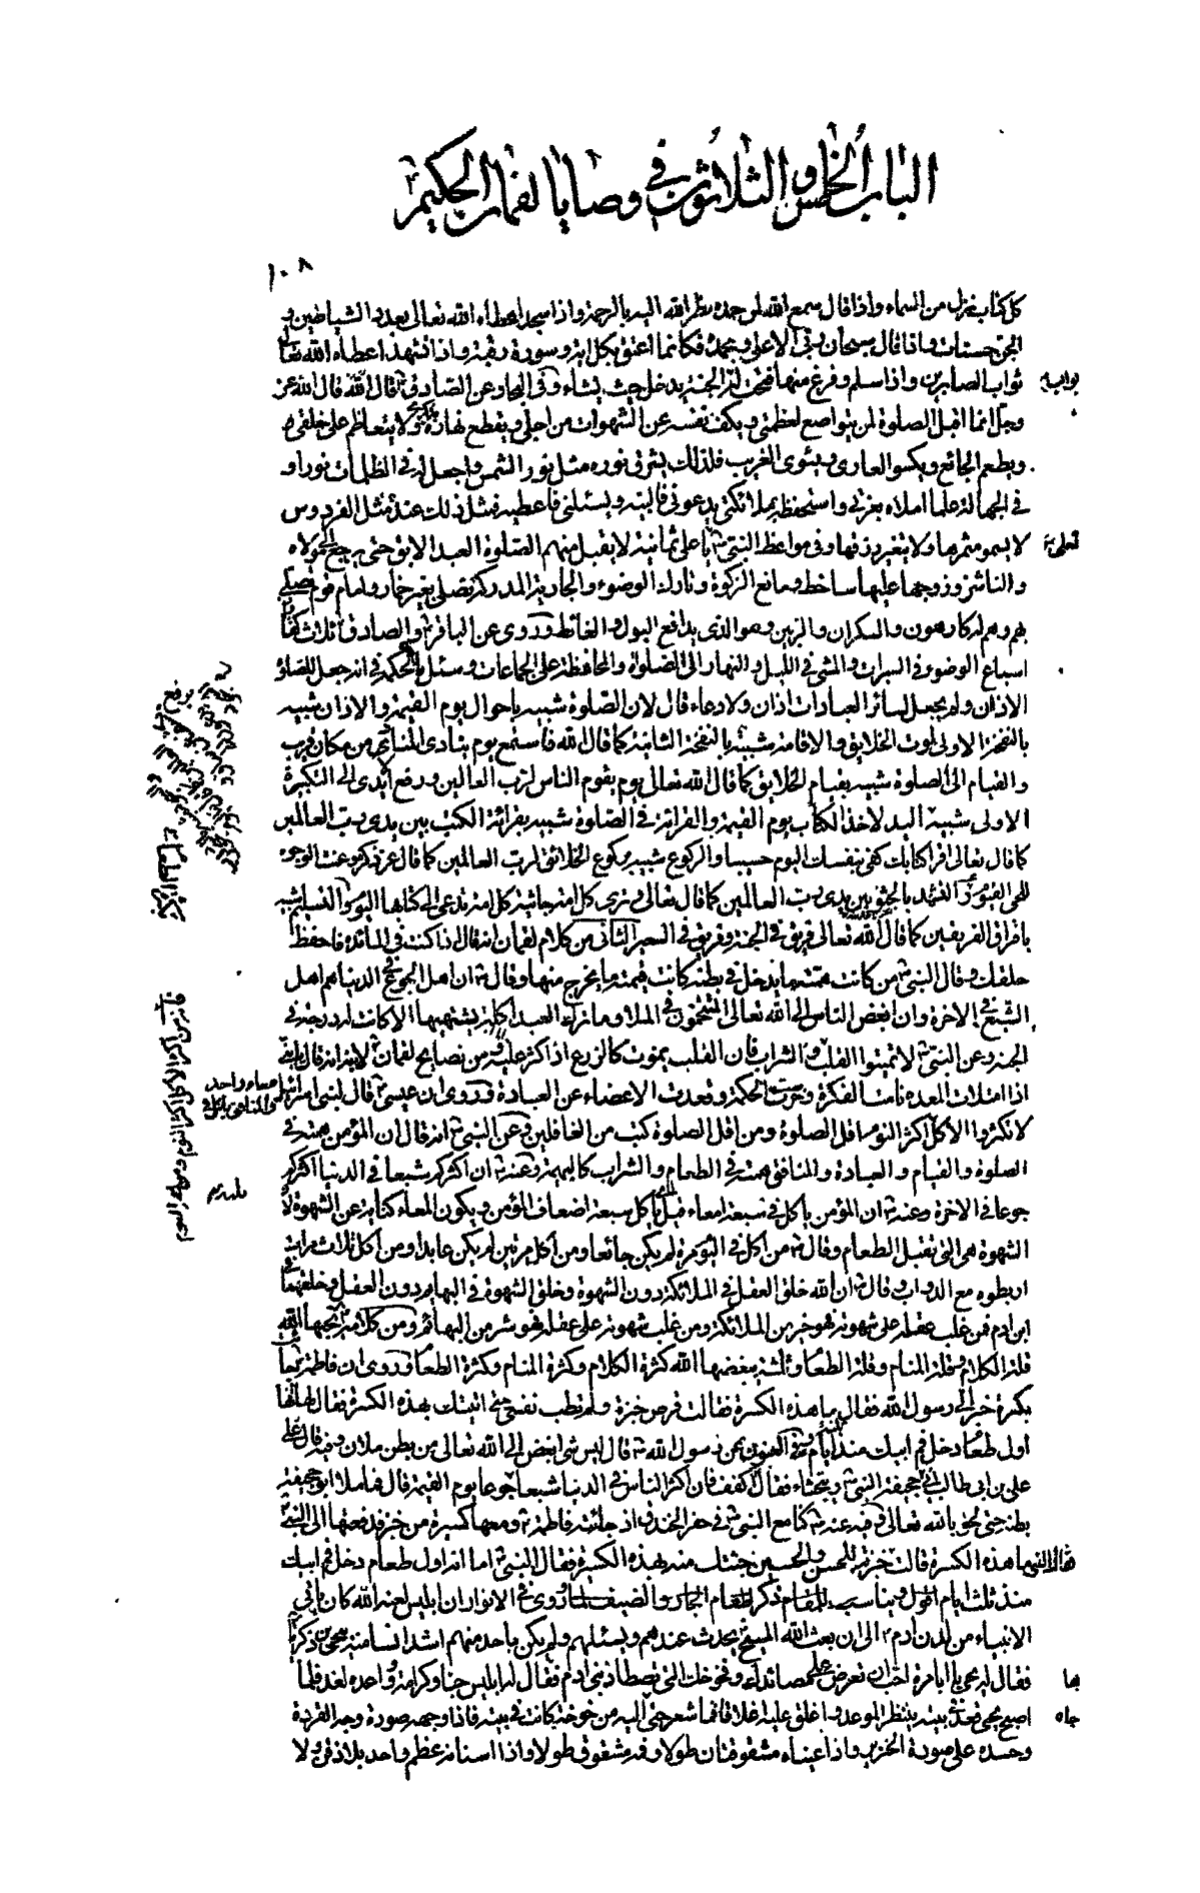 الباب الخامس والثلاثون في وصايا لقمان الحكيم
١٠٨
كل كتاب نزل من السماء واذا قال سمع الله لمن حمده نظر الله اليه بالرحمة واذا سجد اعطاه الله تعالى بعدد الشياطين و
الجن حسنات واذا قال سبحان ربي الاعلى وبحمده فكانما اعتق بكل اية وسورة رقبة واذا تشهد اعطاه الله تعالى
ثواب الصابرين واذا سلم وفرغ منها فتحت له الجنة يدخل حيث يشاء وفي البحار عن الصادق قال قال الله عز
وجل انما اقبل الصلوة لمن يتواضع لعظمتي ويكف نفسه عن الشهوات من اجلي ويقطع نهاره بذكري ولا يتعاظم على خلقي
ويطعم الجائع ويكسو العاري ويئوى الغريب فلذلك يشرق نوره مثل نور الشمس واجعل له في الظلمات نورا و
في الجهالة علما اكلاه بعزتي واستحفظه بملائكتي يدعوني فالبيه ويسئلني فاعطيه فمثل ذلك عندي مثل الفردوس
لا يسمو ثمرها ولا يتغير ورقها وفي مواعظ النبي يا علي ثمانية لا يقبل منهم الصلوة العبد الابق حتى يرجع الى مولاه
والناشز وزوجها عليها ساخط ومانع الزكوة وتارك الوضوء والجارية المدركة تصلي بغير خمار وامام قوم يصلي
بهم وهم له كارهون والسكران والزبين وهو الذي يدافع البول والغائط وروى عن الباقر والصادق ثلاث كفارات
اسباغ الوضوء في السبرات والمشي في الليل والنهار الى الصلوة والمحافظة على الجماعات وسئل ما الحكمة في انه جعل للصلوة
الاذان ولم يجعل لسائر العبادات اذان ولا دعاء قال لان الصلوة شبيه باحوال يوم القيمة والاذان شبيه
بالنفخة الاولى لموت الخلايق والاقامة شبيه بالنفخة الثانية كما قال الله فاستمع يوم ينادى المنادي من مكان قريب
والقيام الى الصلوة شبيه بقيام الخلايق كما قال الله تعالى يوم يقوم الناس لرب العالمين ورفع الايدى الى التكبيرة
الاولى شبيه اليد لاخذ الكتاب يوم القيمة والقرائة في الصلوة شبيه بقرائة الكتب بين يدى رب العالمين
كما قال تعالى اقرا كتابك كفى بنفسك اليوم حسيبا والركوع شبيه بركوع الخلائق لرب العالمين كما قال عز ذكره وعنت الوجوه
للحي القيوم والتشهد بالجثو بين يدى رب العالمين كما قال تعالى وترى كل امة جاثية كل امة تدعى الى كتابها اليوم والتسليم شبيه
بافراق الفريقين كما قال الله تعالى فريق في الجنة وفريق في السعير الثاني من كلام لقمان انه قال اذا كنت في المائدة فاحفظ
حلقك وقال النبي من كانت همته ما يدخل في بطنه كانت قيمته ما يخرج منها وقال ان اهل الجوع في الدنيا هم اهل
الشبع في الاخرة وان ابغض الناس الى الله تعالى المتخمون في الملا وما ترك العبد اكلة يشتهيها الا كانت له درجة في
الجنة وعن النبي لا تميتوا القلب بالشراب فان القلب يموت كالزرع اذا كثر عليه ومن نصايح لقمان لابنه انه قال يا بني
اذا امتلات المعدة نامت الفكرة وخرست الحكمة وقعدت الاعضاء عن العبادة وروى ان عيسى قال لبني اسرائيل
لا تكثروا الاكل اكثر النوم اقل الصلوة ومن اقل الصلوة كتب من الغافلين وعن النبي انه قال ان المؤمن همته في
الصلوة والقيام والعبادة والمنافق همته في الطعام والشراب كالبهيمة وعنه ان اكثركم شبعا في الدنيا اكثركم
جوعا في الاخرة وعنه ان المؤمن ياكل في سبعة امعاء قيل ياكل سبعة اضعاف المؤمن ويكون المعاء كناية عن الشهوة لان
الشهوة هي التي تقبل الطعام وقال من اكل في اليوم مرة لم يكن جائعا ومن اكل مرتين لم يكن عابدا ومن اكل ثلاث مرات
اربطوه مع الدواب وقال ان الله خلق العقل في الملائكة دون الشهوة وخلق الشهوة في البهايم دون العقل وخلقهما في
ابن ادم فمن غلب عقله على شهوته فهو خير من الملائكة ومن غلب شهوته على عقله فهو شر من البهائم ومن كلامه ثلاثة يحبها الله
قلة الكلام وقلة المنام وقلة الطعام وثلثة يبغضها الله كثرة الكلام وكثرة المنام وكثرة الطعام وروى ان فاطمة جائت
بكسرة خبز الى رسول الله فقال ما هذه الكسرة فقالت قرص خبزة ولم تطب نفسي حتى اتيتك بهذه الكسرة فقال لها انها
اول طعام دخل فم ابيك منذ ثلثة ايام وفي العيون عن رسول الله قال ليس شئ ابغض الى الله تعالى من بطن ملان وفيه قال
علي بن ابي طالب اتى جحيفة النبي ويتجشاء فقال اكفف فان اكثر الناس في الدنيا شبعا اكثرهم جوعا يوم القيمة قال فما ملا ابو جحيفة
بطنه حتى لحق بالله تعالى وفيه عنه كنا مع النبي في حفر الخندق اذ جائت فاطمة ومعها كسيرة من خبز فدفعتها الى النبي
فقال النبي ما هذه الكسرة قالت خبزته للحسن والحسين جئتك منه بهذه الكسرة فقال النبي اما انه اول طعام دخل فم ابيك
منذ ثلث ايام اقول ويناسب للمقام ذكر اطعام الجار والضيف لما روى في الانوار ان ابليس لعنه الله كان ياتي
الانبياء من لدن ادم الى ان بعث الله المسيح يحدث عندهم ويسئلهم ولم يكن باحد منهم اشد انسا منه بيحيى بن زكريا
فقال له يحيى يا ابا مرة احب ان تعرض علي مصائدك وفخوخك التي تصطاد بني ادم فقال له ابليس حبا وكرامة وواعده لغد فلما
اصبح يحيى قعد في بيته ينتظر الموعد واغلق عليه اغلاقا فما شعر حتى اليه من خوخة كانت في بيته فاذا وجهه صورة وجه القردة
وجسده على صورة الخنزير واذا عيناه مشقوقتان طولا وفمه مشقوق طولا واذا اسنانه عظم واحد بلا ذقن ولا
معاء واحد
والمنافق ياكل في
جاه